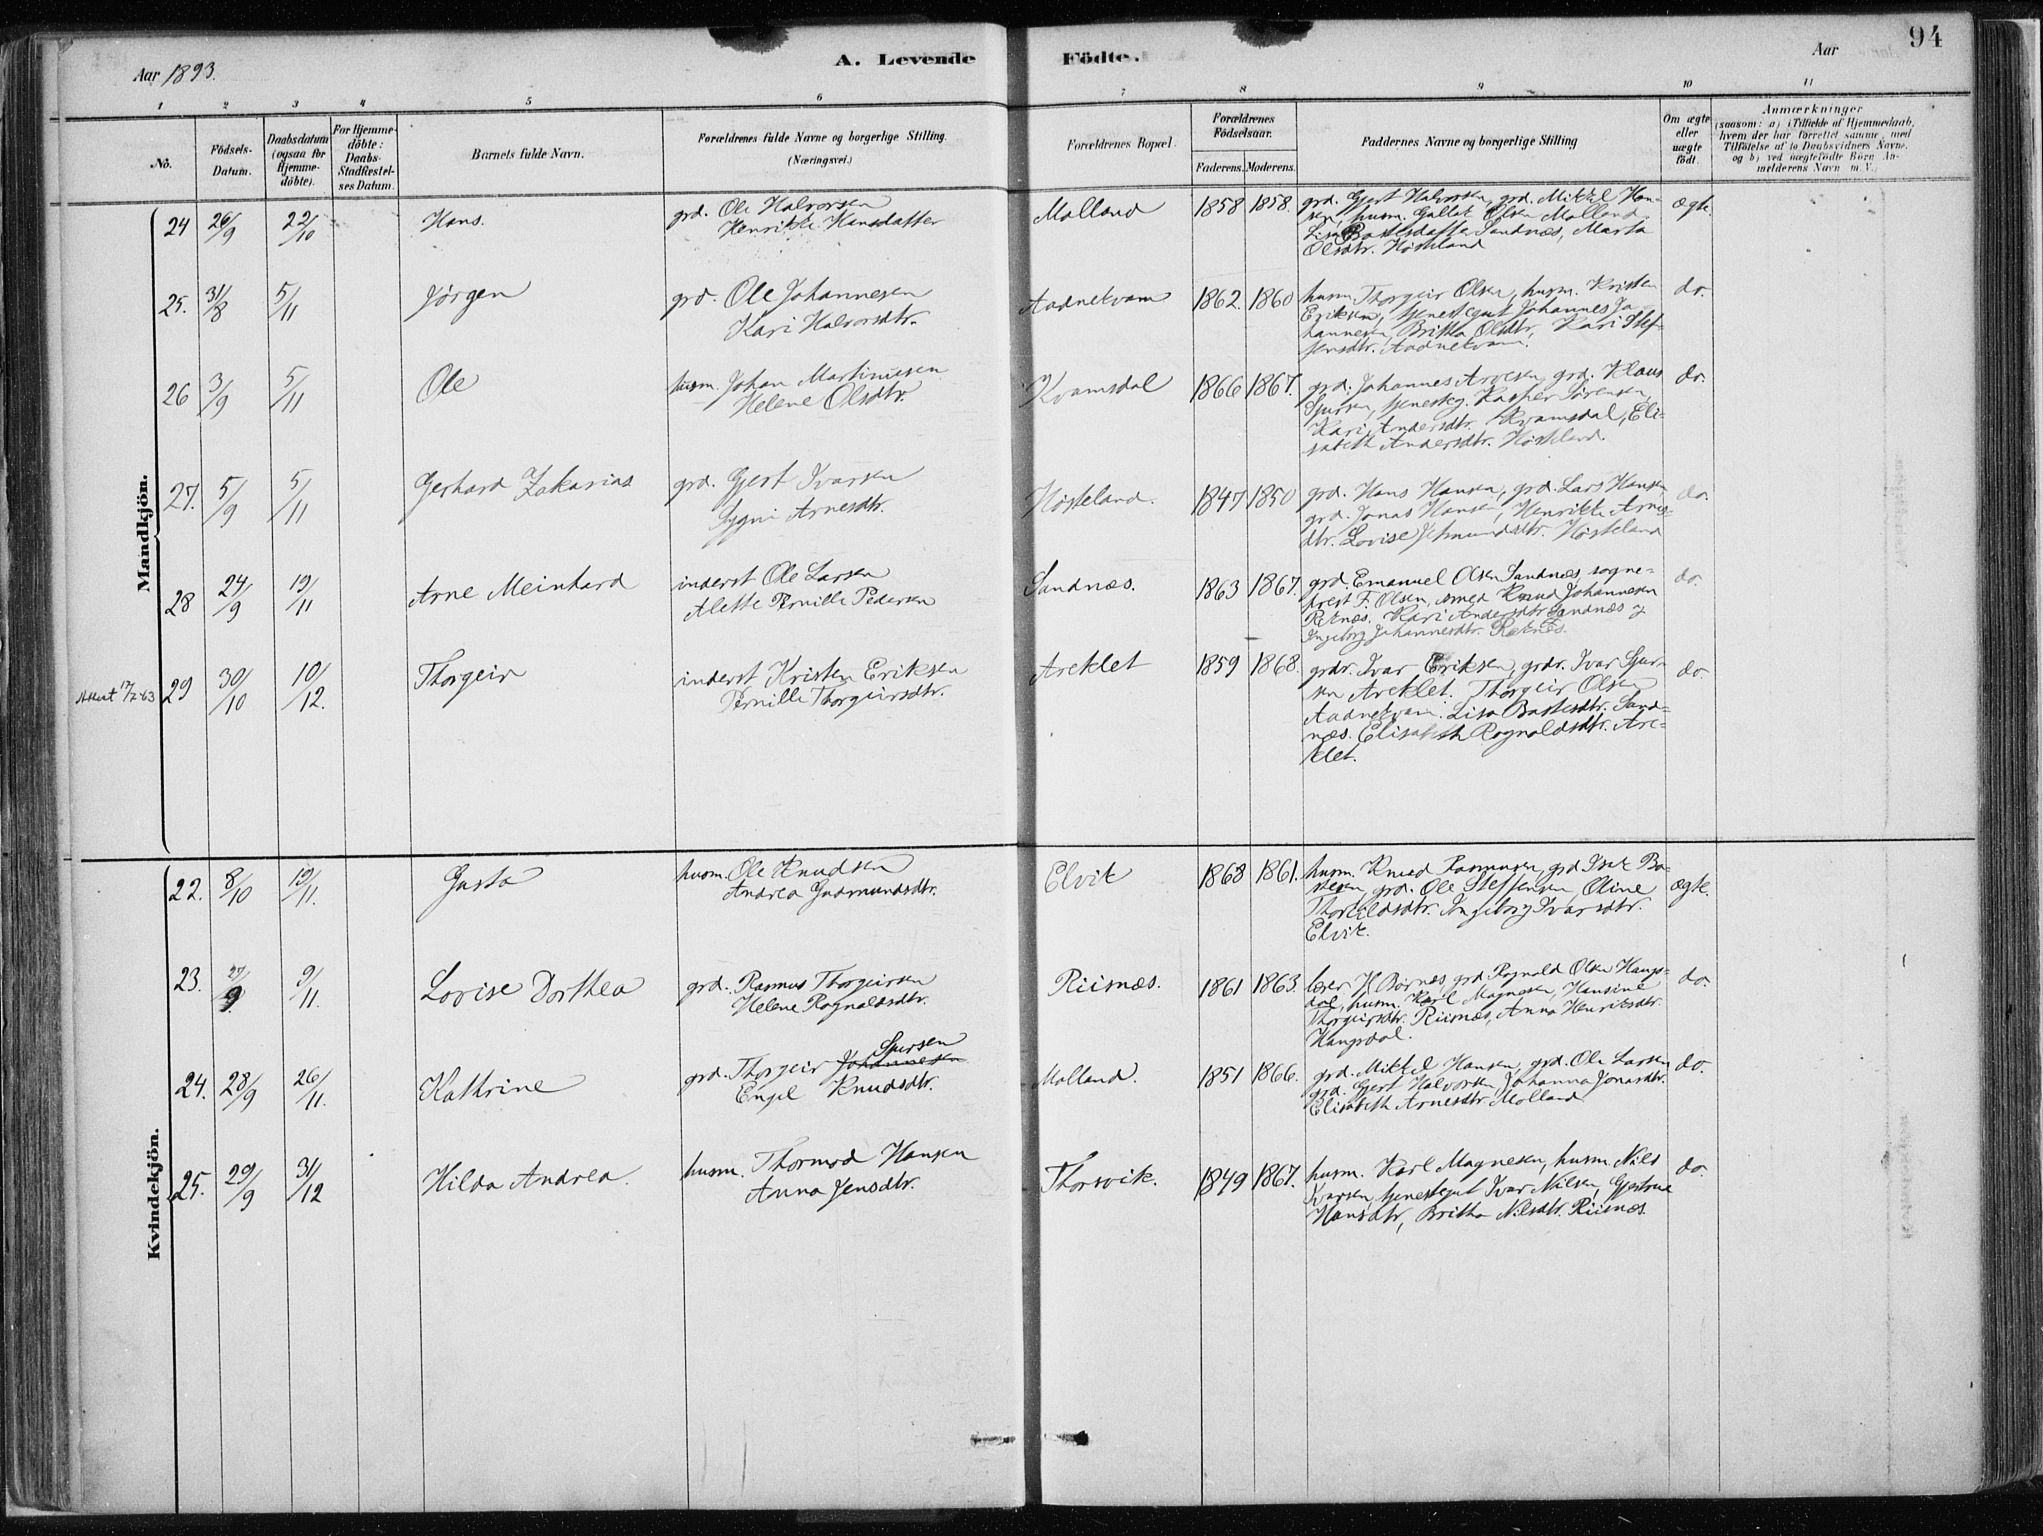 94
Aar 1893.
A. Levende Födte.
Aar
1 2 3 4 5 6 7 8 9 10 11
No.
Födsels-Datum.
Daabsdatum (ogsaa for Hjemme-döbte).
For Hjemme-döbte: Daabs-Stadfæstel-ses Datum.
Barnets fulde Navn.
Forældrenes fulde Navne og borgerlige Stilling.
(Næringsvei.)
Forældrenes Bopæl.
Forældrenes Födselsaar.
Faderens. Moderens.
Faddernes Navne og borgerlige Stilling
Om ægte eller uægte födt.
Anmærkninger
(saasom: a) i Tilfælde af Hjemmedaab,
hvem der har forrettet samme, med
Tilföielse af to Daabsvidners Navne,
og b) ved uægtefödte Börn An-
melderens Navn m. V.)
Mandkjön.
24 26/9 22/10 Hans. grd. Ole Halvorsen Molland 1858 1858. grd. Gjert Halvorsen, grd. Mikkel Han- ægte.
Henrikke Hansdatter sen, husm. Gullak Olsen Molland
Lisa Bastesdatter Sandnæs, Marta
Olsdtr. Høsteland
25. 31/8 5/11 Jørgen grd. Ole Johannesen Aadnekvam 1862. 1860 husm. Thorgeir Olsen, husm. Kristen do.
Kari Halvorsdtr. Eriksen, tjenestegut Johannes Jo-
hannesen, Britha Olsdtr, Kari Stef-
fensdtr. Aadnekvam.
26 3/9 5/11 Ole husm. Johan Martinusen Kvamsdal 1866 1867. grd. Johannes Arvesen, grd. Klaus do.
Helene Olsdtr. Sjursen, tjenesteg. Kasper Sørensen,
Kari Andersdtr. Kvamsdal, Eli-
sabeth Andersdtr. Høsteland.
27. 5/9 5/11 Gerhard Zakarias grd. Gjert Ivarsen Høsteland. 1847 1850 grd. Hans Hansen, grd. Lars Hansen, do.
Sygni Arnesdtr. grd. Jonas Hansen, Henrikke Arnes-
dtr. Lovise Jetmundsdtr. Høsteland
28 24/9 19/11 Arne Meinhard inderst Ole Larsen Sandnæs. 1863 1867. grd. Emanuel Olsen Sandnæs, sogne- do.
Alette Pernille Pedersen prest F. Olsen, smed Knud Johannesen
Reknæs. Kari Andersdtr Sandnæs og
Ingeborg Johannesdtr. Reknæs.
Attest 17/2 63 29 30/10 10/12. Thorgeir inderst Kristen Eriksen Areklet 1859 1868. grdr. Ivar Eriksen, grdr. Ivar Sjur- do.
Pernille Thorgeirsdtr. sen Areklet. Thorgeir Olsen
Aadnekvam. Lisa Bastesdtr. Sand-
næs. Elisabeth Rognaldsdtr. Are-
klet.
Kvindekjön.
22. 8/10 19/11. Gusta husm. Ole Knudsen Elvik 1868 1861. husm. Knud Rasmusen, grd Isak Ba- ægte.
Andrea Gudmundsdtr. stesen, grd. Ole Steffensen, Oline
Thorkildsdtr. Ingeborg Ivarsdtr.
Elvik.
23. 27/9. 9/11. Lovise Dorthea grd. Rasmus Thorgeirsen Riisnæs. 1861 1863. lærer H Børnæs, grd Rognald Olsen Haugs- do.
Helene Rognaldsdtr. dal, husm. Karl Magnesen, Hansine
Thorgeirsdtr. Riisnæs, Anna Henriksdtr.
Haugsdal.
Sjursen
24. 28/9 26/11. Kathrine grd. Thorgeir Johannesen Molland. 1851 1866. grd. Mikkel Hansen, grd. Ole Larsen do.
Engel Knudsdtr. grd. Gjert Halvorsen, Johanna Jonasdtr.
Elisabeth Arnesdtr Molland
25. 29/9 31/12 Hilda Andrea. husm. Thormod Hansen Thorsvik. 1849 1867. husm. Karl Magnesen, husm. Nils do.
Anna Jensdtr. Ivarsen, tjenestegut Ivar Nilsen, Gjertrue
Hansdtr, Britha Nilsdtr. Riisnæs.